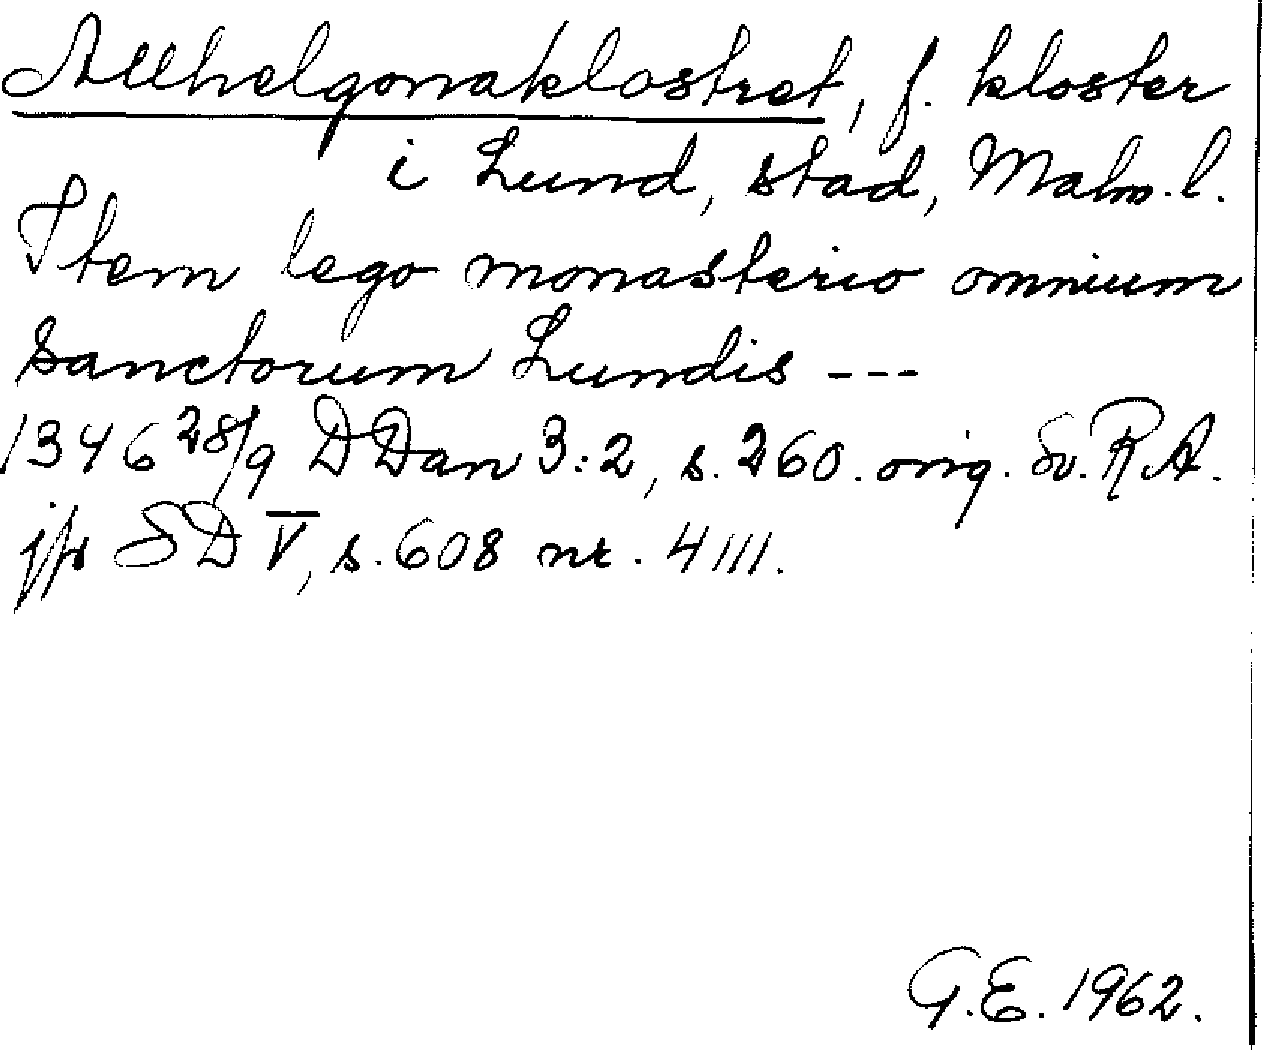 Allhelgonaklostret, f. kloster
i Lund, stad, Malm. l.
Item lego monasterio omnium
Sanctorum Lundis ---
1346 28/9 DDan 3:2, s. 260. orig. Sv. R.A.
jfr SD V, s. 608 nr. 4111.
G.E. 1962.